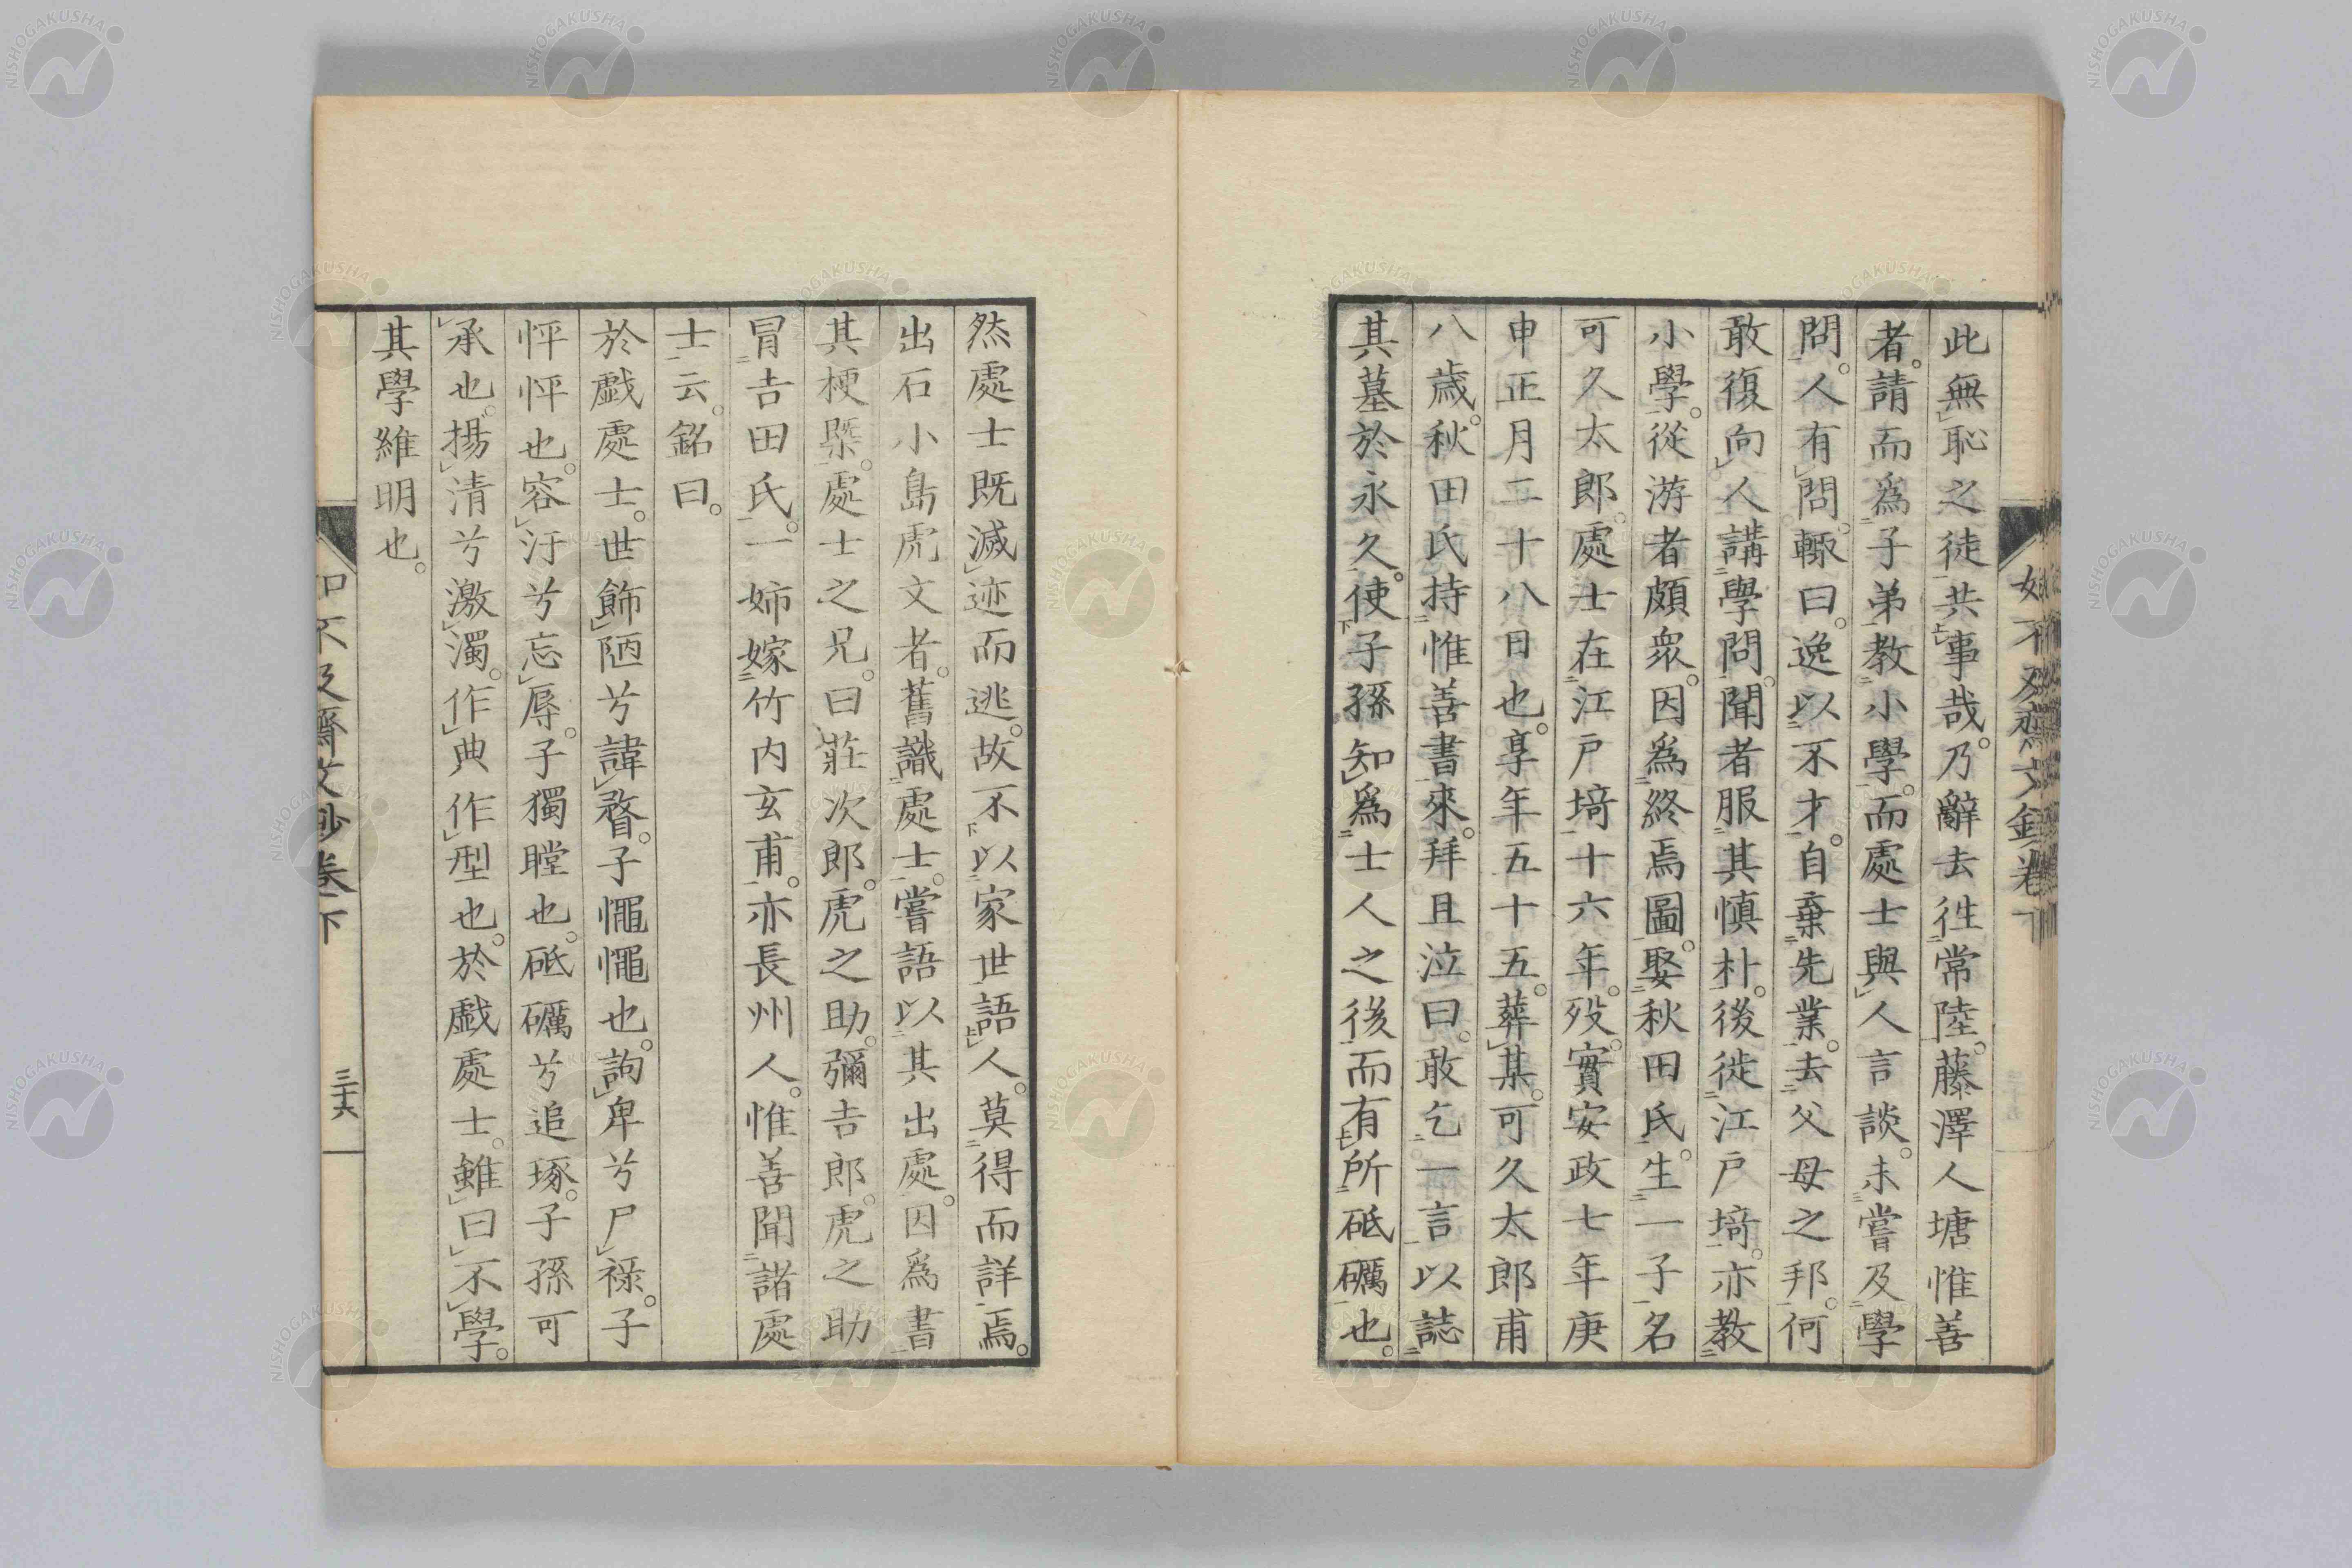 此無恥之徒共事哉。乃辭去徃常陸。藤澤人塘惟善
者。請而爲子弟教小學。而處士與人言談。未嘗及學
問。人有問。輒曰。逸以不才。自棄先業。去父母之邦。何
敢復向人講學問。聞者服其愼朴。後徙江戶埼。亦教
小學。從游者頗衆。因爲終焉圖。娶秋田氏。生一子名
可久太郎。處士在江戶埼十六年。歿。實安政七年庚
申正月二十八日也。享年五十五。葬某。可久太郎甫
八歳。秋田氏持惟善書來。拜且泣曰。敢乞一言以誌
其墓於永久。使子孫知爲士人之後而有所砥礪也。
然處士既滅迹而逃。故不以家世語人。莫得而詳焉。
出石小島虎文者。舊識處士。嘗語以其出處。因爲書
其梗槩。處士之兄。曰莊次郎。虎之助。彌吉郎。虎之助
冒吉田氏。一姉嫁竹内玄甫。亦長州人。惟善聞諸處
士云。銘曰。
於戲處士。世飾陋兮諱瞀。子僶僶也。訽卑兮尸祿。子
怦怦也。容汙兮忘辱。子獨瞠也。砥礪兮追琢。子孫可
承也。揚清兮激濁。作典作型也。於戲處士。雖曰不學。
其學維明也。
如不及齋文鈔卷下
三十六